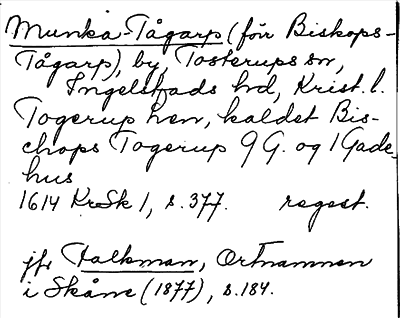 Munka-Tågarp (för Biskops-
Tågarp), by, Tosterups sn,
Ingelstads hd, Krist. l.
Togerup hen, kaldet Bis-
chops Togerup 9 G. og 1 Gade-
hus
1614 KrSk 1, s. 377. regest.
jfr Falkman, Ortnamnen
i Skåne (1877), s. 184.